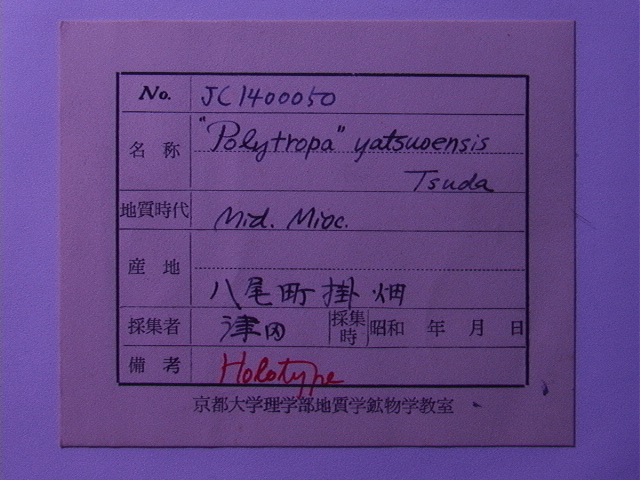 No. JC1400050
名称 "Polytropa" yatsuoensis
Tsuda
地質時代 Mid. Mioc.
産地
八尾町掛畑
採集者 津田 採集時 昭和 年 月 日
備考 Holotype
京都大学理学部地質学鉱物学教室